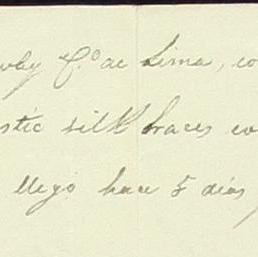 Cº de Lima, co
stic silk braces co
llegó hace 5 días